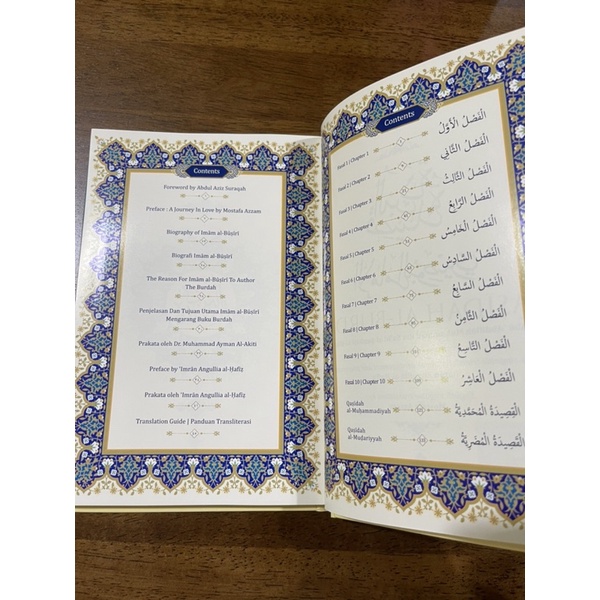 Contents
Foreword by Abdul Aziz Suraqah
Preface : A Journey In Love by Mostafa Azzam
Biography of Imām al-Būṣīrī
Biografi Imām al-Būṣīrī
The Reason For Imām al-Būṣīrī To Author
The Burdah
Penjelasan Dan Tujuan Utama Imām al-Būṣīrī
Mengarang Buku Burdah
Prakata oleh Dr. Muhammad Ayman Al-Akiti
Preface by 'Imrān Angullia al-Ḥafīẓ
Prakata oleh 'Imrān Angullia al-Ḥafīẓ
Translation Guide | Panduan Transliterasi
Contents
Fasal 1 | Chapter 1 الْفَصْلُ الْأَوَّلُ
Fasal 2 | Chapter 2 الْفَصْلُ الثَّانِي
Fasal 3 | Chapter 3 الْفَصْلُ الثَّالِثُ
Fasal 4 | Chapter 4 الْفَصْلُ الرَّابِعُ
Fasal 5 | Chapter 5 الْفَصْلُ الْخَامِسُ
Fasal 6 | Chapter 6 الْفَصْلُ السَّادِسُ
Fasal 7 | Chapter 7 الْفَصْلُ السَّابِعُ
Fasal 8 | Chapter 8 الْفَصْلُ الثَّامِنُ
Fasal 9 | Chapter 9 الْفَصْلُ التَّاسِعُ
Fasal 10 | Chapter 10 الْفَصْلُ الْعَاشِرُ
Qaṣīdah
al-Muḥammadiyah الْقَصِيدَةُ الْمُحَمَّدِيَّةُ
Qaṣīdah
al-Muḍariyyah الْقَصِيدَةُ الْمُضَرِيَّةُ